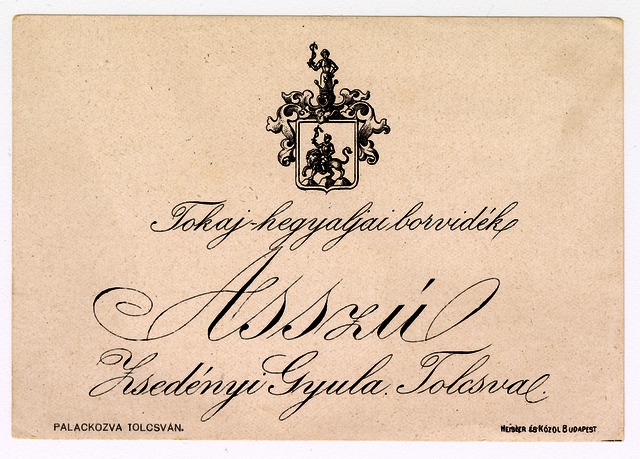 Tokaj-hegyaljai borvidék
Asszú
Zsedényi Gyula. Tolcsva.
PALACKOZVA TOLCSVÁN.
MEISNER ÉS KÓZOL BUDAPEST